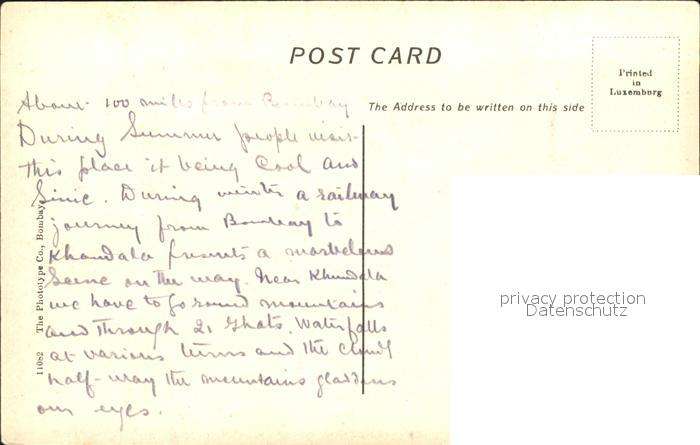 POST CARD
Printed
in
Luxemburg
The Address to be written on this side
About 100 miles from Bombay
During Summer people visit
this place it being Cool and
During winter a railway
journey from Bombay to
Khandala presents a
Scene on the way. Near Khandala
we have to go round mountains
and through 21 Ghats. Waterfalls
at various turns and the
half-way the mountains gladdens
our eyes.
11082 The Phototype Co., Bombay.
privacy protection
Datenschutz